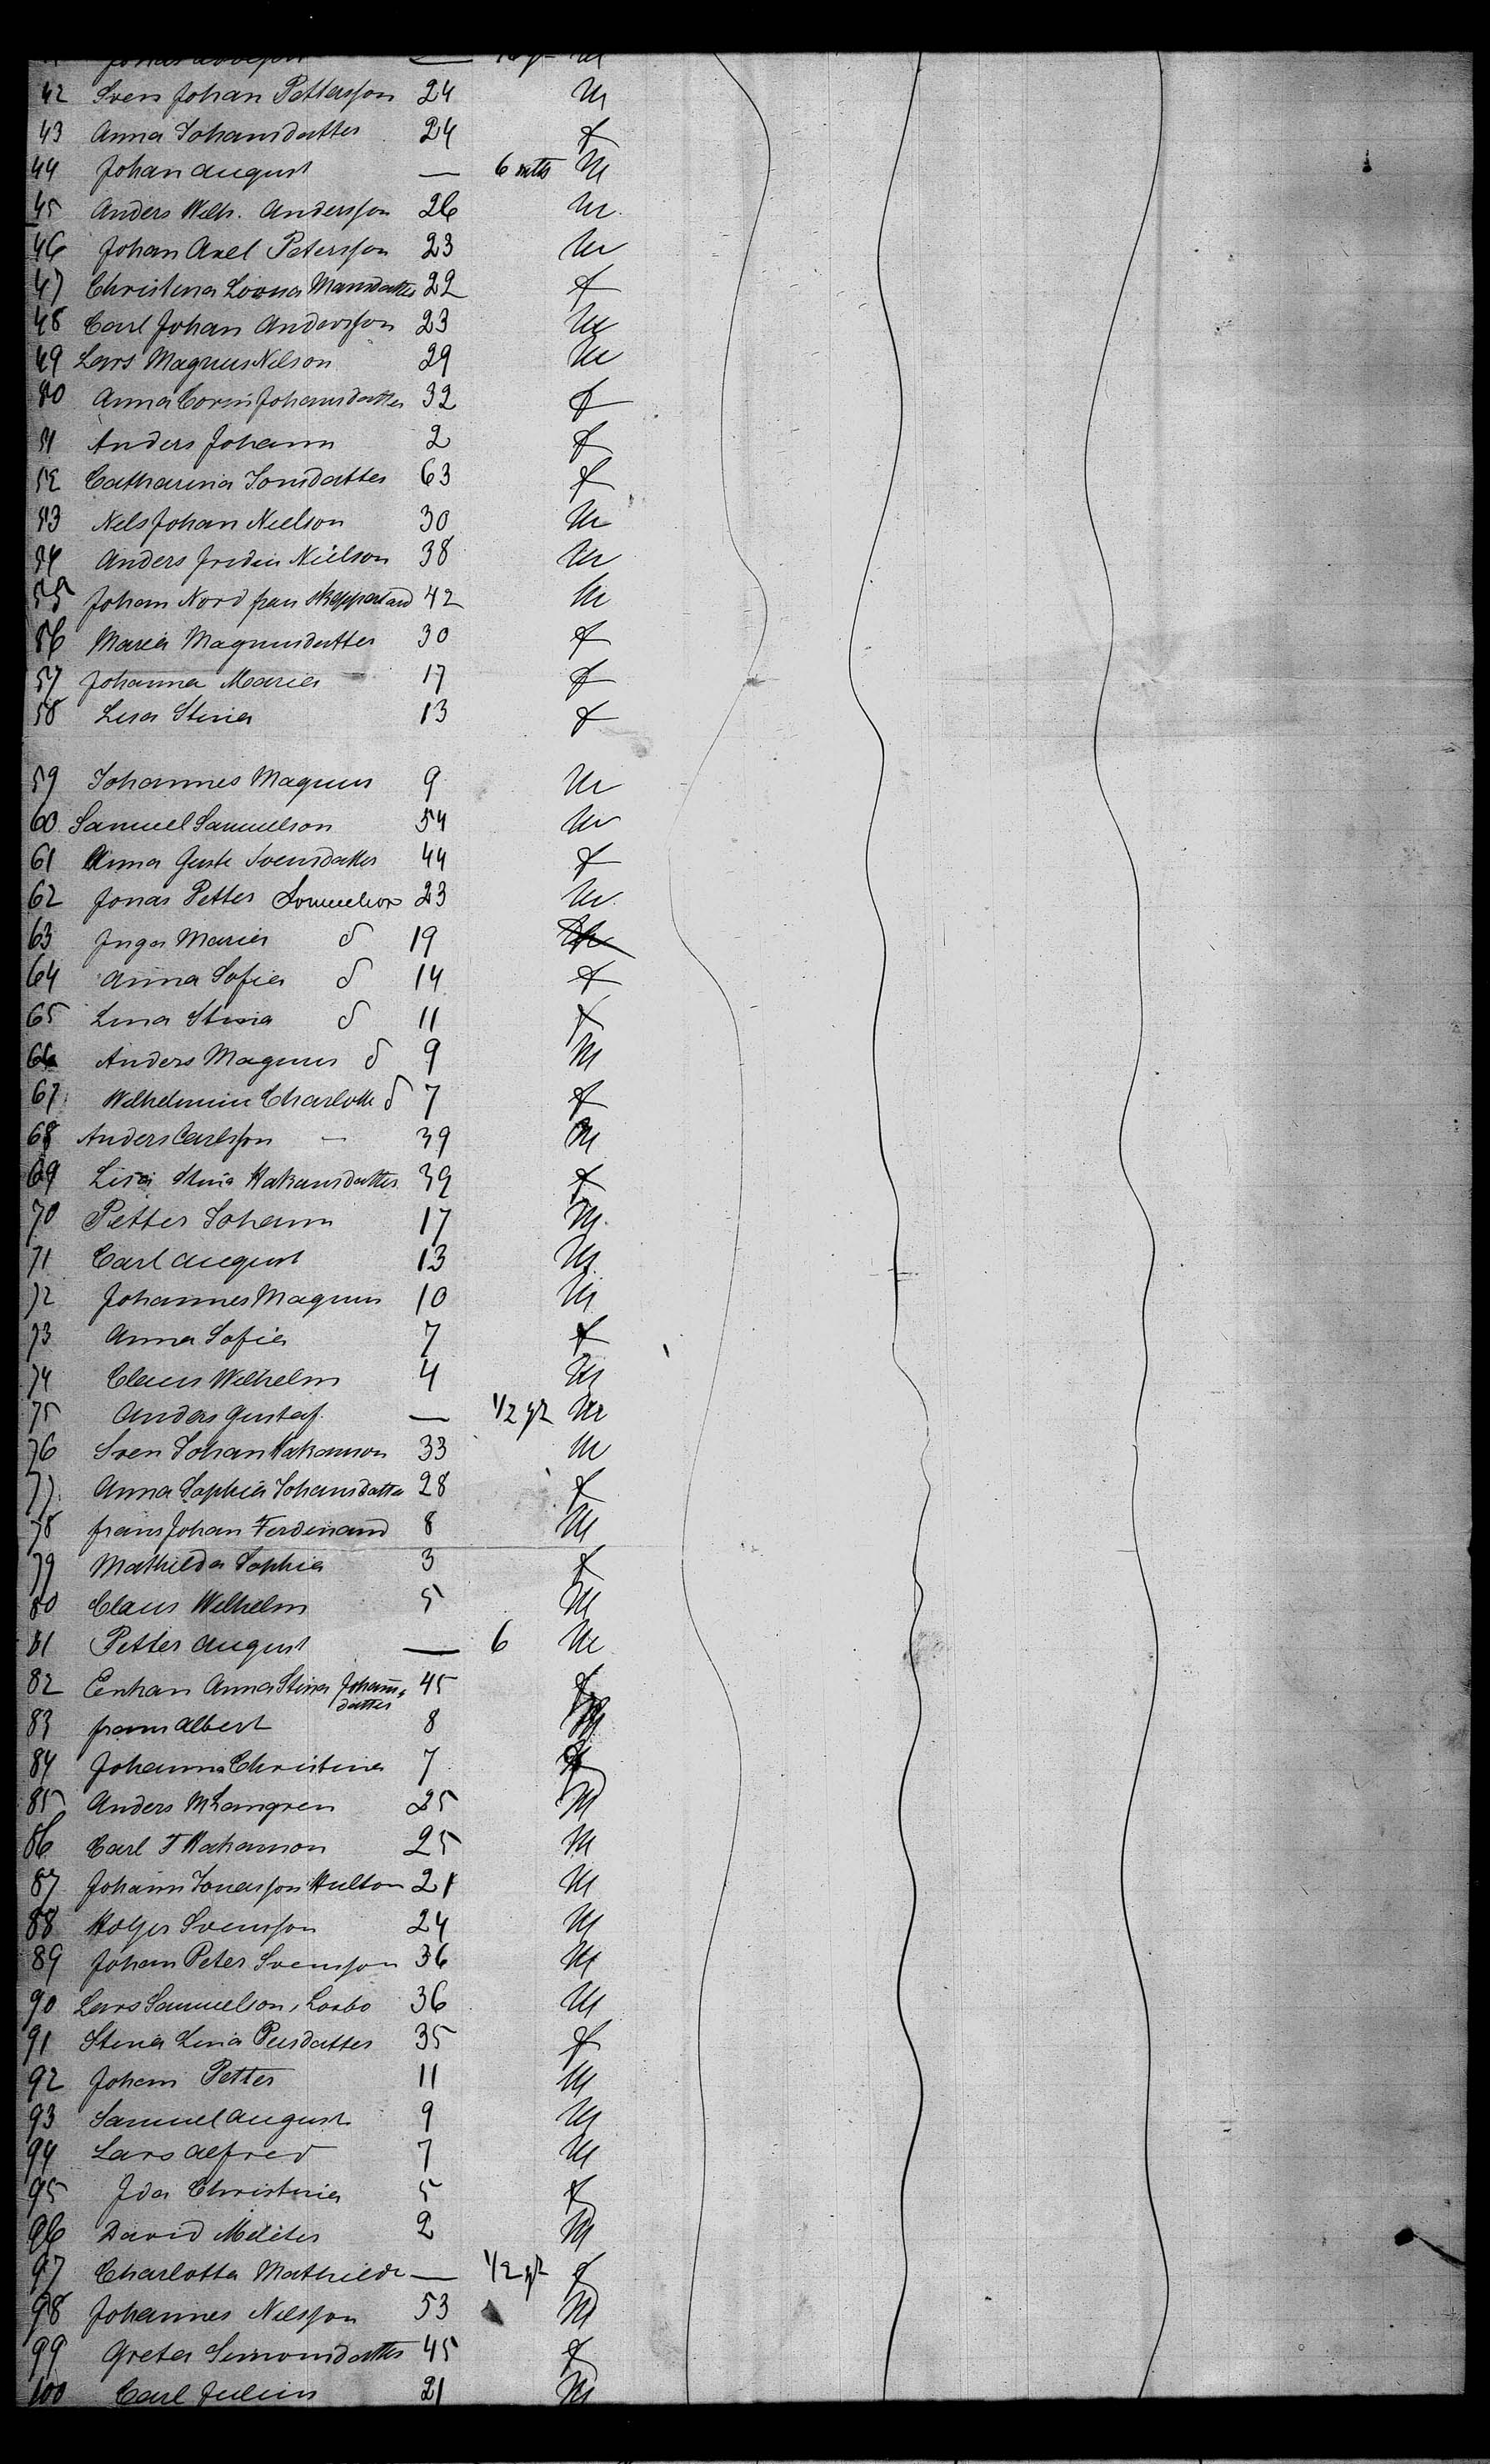 42 Sven Johan Pettersson 24 M
43 Anna Johansdatter 24 f
44 Johan August — 6 mths M
45 Anders Wilh. Andersson 26 M
46 Johan Axel Petersson 23 M
47 Christina Lovisa Mansdatter 22 f
48 Carl Johan Andersson 23 M
49 Lars Magnus Nilson 29 M
50 Anna Johansdatter 32 f
51 Anders Johann 2 f
52 Catharina Jonsdatter 63 f
53 Nels Johan Nielson 30 M
54 Anders Nielson 38 M
55 Johan Nord fran 42 M
56 Maria Magnusdatter 30 f
57 Johanna Maria 17 f
58 Lisa Stina 13 f
59 Johannes Magnus 9 M
60 Samuel Samuelson 54 M
61 Anna Svensdatter 44 f
62 Jonas Petter Samuelson 23 M
63 Inga Maria d 19
64 Anna Sofia d 14 f
65 Lina Stina d 11 f
66 Anders Magnus d 9 M
67 Wilhelmine Charlotte d 7 f
68 Anders Carlsson — 39 M
69 Lisa Stina Hakansdatter 39 f
70 Petter Johann 17 M
71 Carl August 13 M
72 Johannes Magnus 10 M
73 Anna Sofia 7 f
74 Claus Wilhelm 4 M
75 Anders Gustaf — 1/2 yr M
76 Sven Johan Hakanson 33 M
77 Anna Sophia Johansdatter 28 f
78 frans Johan Ferdinand 8 M
79 Mathilda Sophia 3 f
80 Claus Wilhelm 5 M
81 Petter August — 6 M
82 Enkan Anna Stina Johansdatter 45 f
83 frans Albert 8 M
84 Johanna Christina 7 f
85 Anders M Langren 25 M
86 Carl J Hakanson 25 M
87 Johann Jonasson Hulton 21 M
88 Holger Svensson 24 M
89 Johan Peter Svensson 36 M
90 Lars Samuelson, 36 M
91 Stina Lina Persdatter 35 f
92 Johan Petter 11 M
93 Samuel August 9 M
94 Lars Alfred 7 M
95 Ida Christina 5 f
96 David 2 M
97 Charlotta Mathilde — 1/2 yr f
98 Johannes Nilsson 53 M
99 Greta Simonsdatter 45 f
100 Carl Julius 21 M